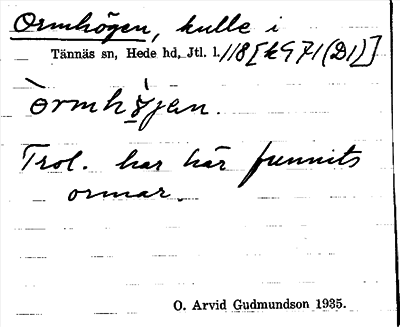 Ormhögen, kulle i
Tännäs sn, Hede hd, Jtl. l. 118 [k971(D1)]
òrmhö̀jen.
Trol. har här funnits
ormar.
O. Arvid Gudmundson 1935.